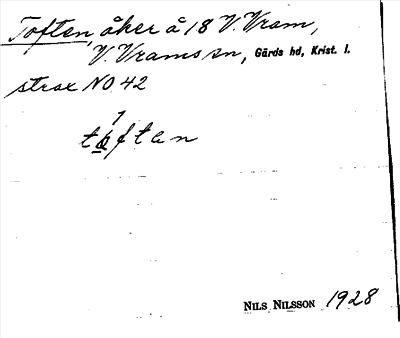 Toften, åker å 18 V. Vram,
V. Vrams sn, Gärds hd, Krist. l.
strax NO 42
tåften
NILS NILSSON 1928